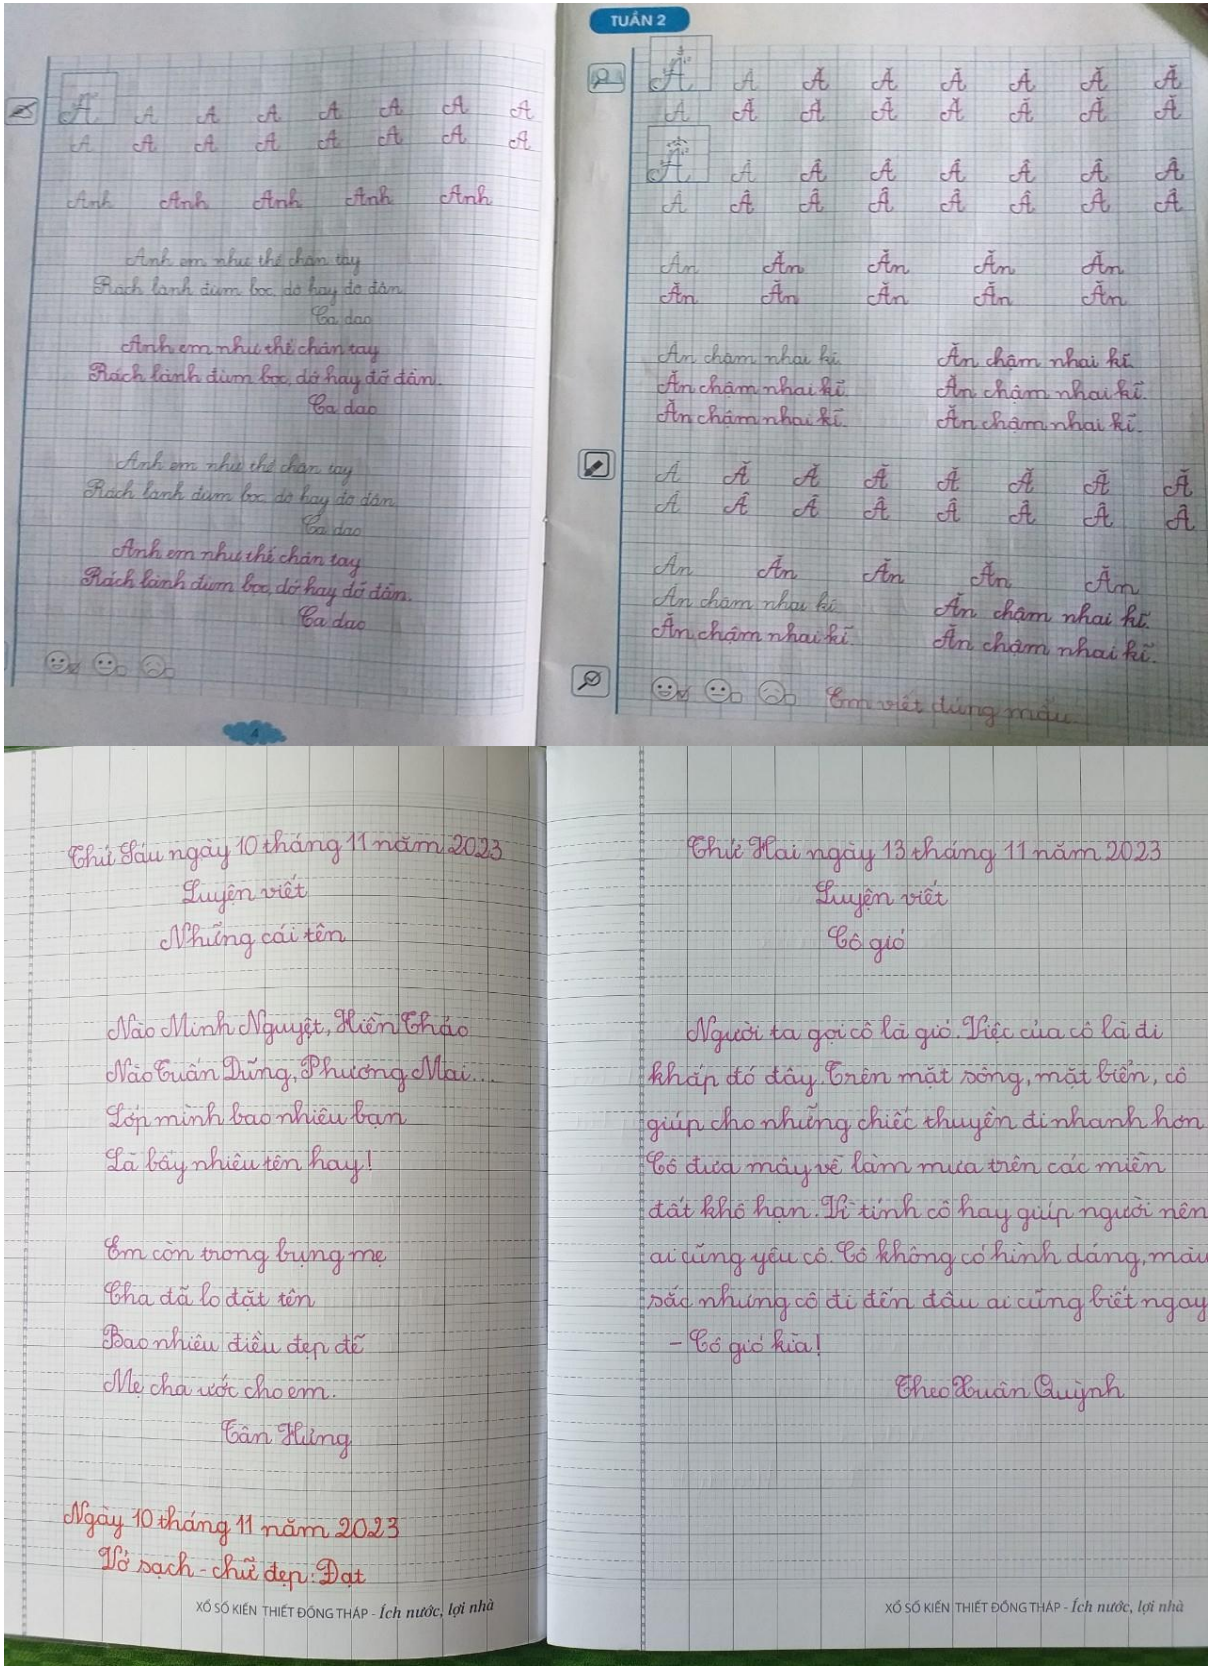 A A A A A A A A
A A A A A A A A
Anh Anh Anh Anh Anh
Anh em như thể chân tay
Rách lành đùm bọc, dở hay đỡ đần.
Ca dao
Anh em như thể chân tay
Rách lành đùm bọc, dở hay đỡ đần.
Ca dao
Anh em như thể chân tay
Rách lành đùm bọc, dở hay đỡ đần.
Ca dao
Anh em như thể chân tay
Rách lành đùm bọc, dở hay đỡ đần.
Ca dao
4
TUẦN 2
Ă Ă Ă Ă Ă Ă Ă Ă
Ă Ă Ă Ă Ă Ă Ă Ă
Â Â Â Â Â Â Â Â
Â Â Â Â Â Â Â Â
Ăn Ăn Ăn Ăn Ăn
Ăn Ăn Ăn Ăn Ăn
Ăn chậm nhai kĩ. Ăn chậm nhai kĩ.
Ăn chậm nhai kĩ. Ăn chậm nhai kĩ.
Ăn chậm nhai kĩ. Ăn chậm nhai kĩ.
Ă Ă Ă Ă Ă Ă Ă Ă
Â Â Â Â Â Â Â Â
Ăn Ăn Ăn Ăn Ăn
Ăn chậm nhai kĩ. Ăn chậm nhai kĩ.
Ăn chậm nhai kĩ. Ăn chậm nhai kĩ.
Em viết đúng mẫu
Thứ Sáu ngày 10 tháng 11 năm 2023
Luyện viết
Những cái tên
Nào Minh Nguyệt, Hiền Thảo
Nào Tuấn Dũng, Phương Mai...
Lớp mình bao nhiêu bạn
Là bấy nhiêu tên hay!
Em còn trong bụng mẹ
Cha đã lo đặt tên
Bao nhiêu điều đẹp đẽ
Mẹ cha ước cho em.
Tân Hưng
Ngày 10 tháng 11 năm 2023
Vở sạch - chữ đẹp: Đạt
XỔ SỐ KIẾN THIẾT ĐỒNG THÁP - Ích nước, lợi nhà
Thứ Hai ngày 13 tháng 11 năm 2023
Luyện viết
Cô gió
Người ta gọi cô là gió. Việc của cô là đi
khắp đó đây. Trên mặt sông, mặt biển, cô
giúp cho những chiếc thuyền đi nhanh hơn
Cô đưa mây về làm mưa trên các miền
đất khô hạn. Vì tính cô hay giúp người nên
ai cũng yêu cô. Cô không có hình dáng, màu
sắc nhưng cô đi đến đâu ai cũng biết ngay
- Cô gió kìa!
Theo Xuân Quỳnh
XỔ SỐ KIẾN THIẾT ĐỒNG THÁP - Ích nước, lợi nhà